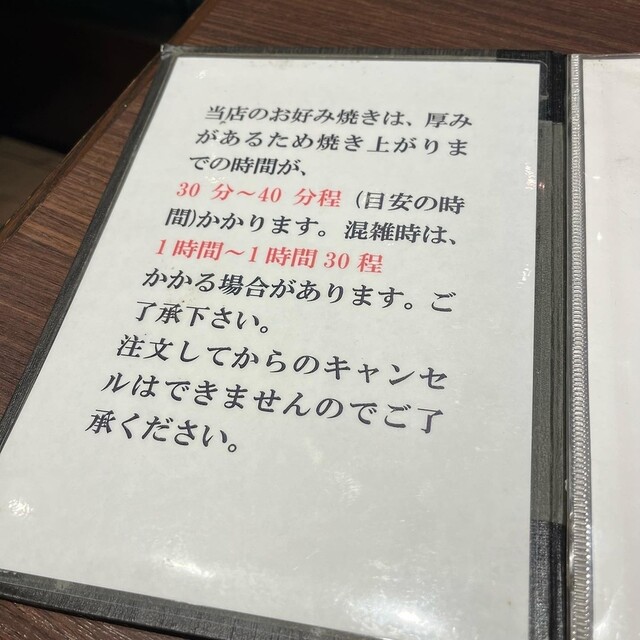 当店のお好み焼きは、厚み
があるため焼き上がりま
での時間が、
30 分～40 分程 (目安の時
間)かかります。混雑時は、
１時間～１時間 30 程
かかる場合があります。ご
了承下さい。
注文してからのキャンセ
ルはできませんのでご了
承ください。